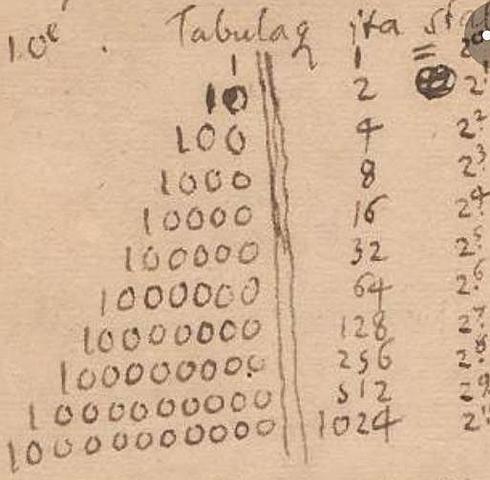 10ᵉ . Tabulaq ita
1 1 2⁰
10 2 2¹
100 4 2²
1000 8 2³
10000 16 2⁴
100000 32 2⁵
1000000 64 2⁶
10000000 128 2⁷
100000000 256 2⁸
1000000000 512 2⁹
10000000000 1024